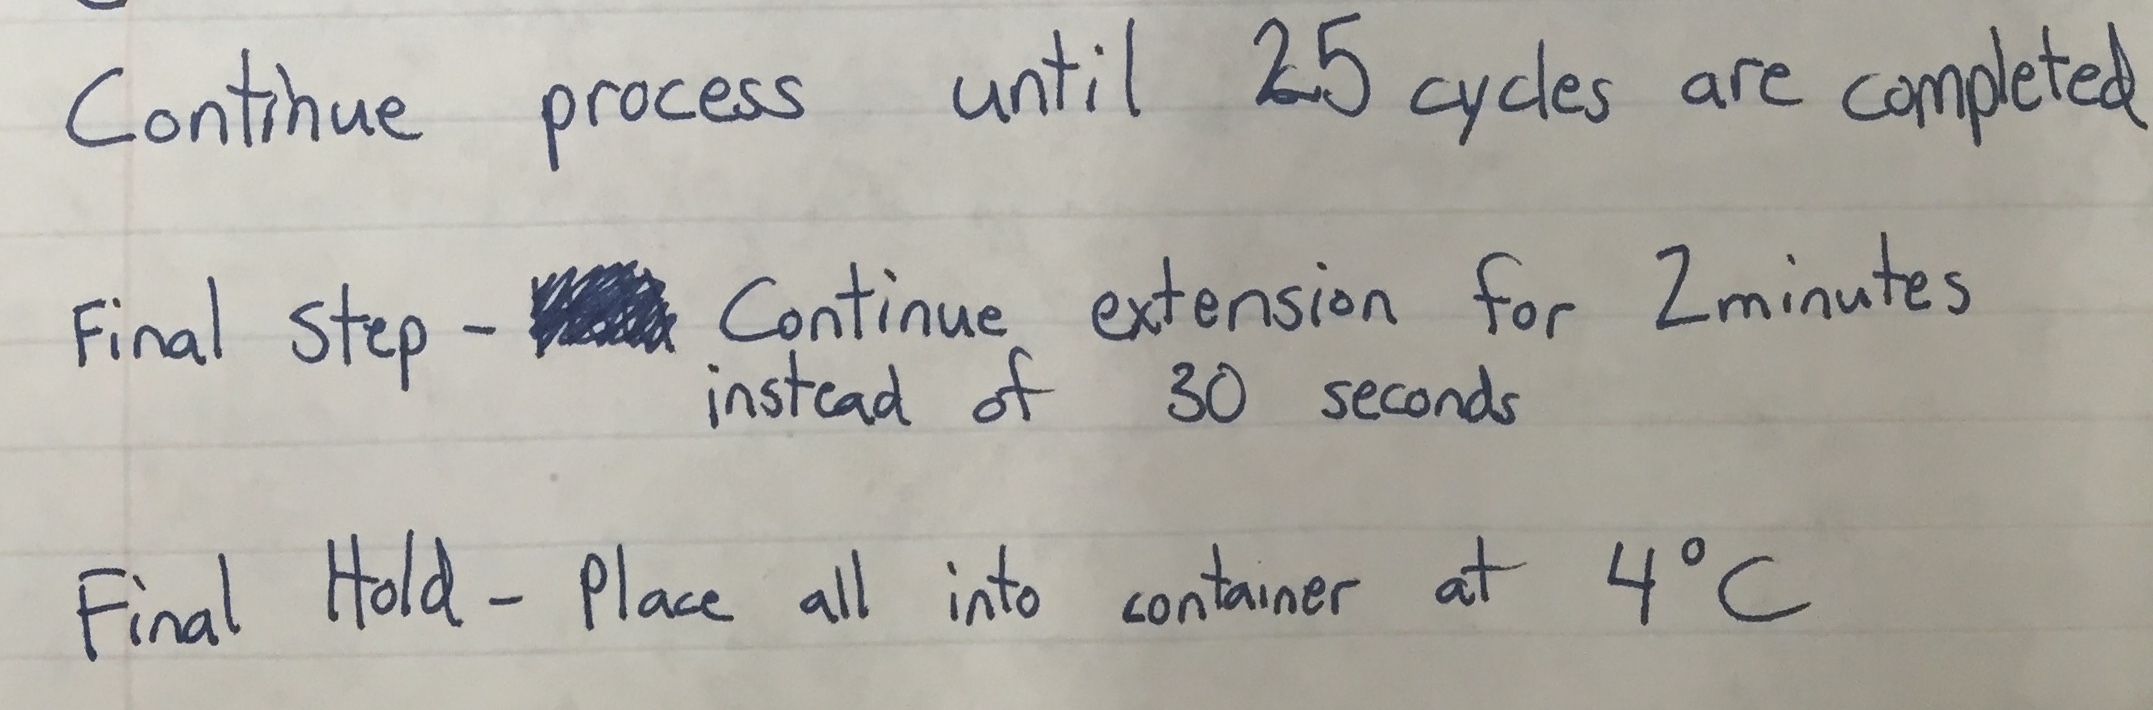 Continue process until 25 cycles are completed
Final Step - Continue extension for 2 minutes
instead of 30 seconds
Final Hold - Place all into container at 4°C